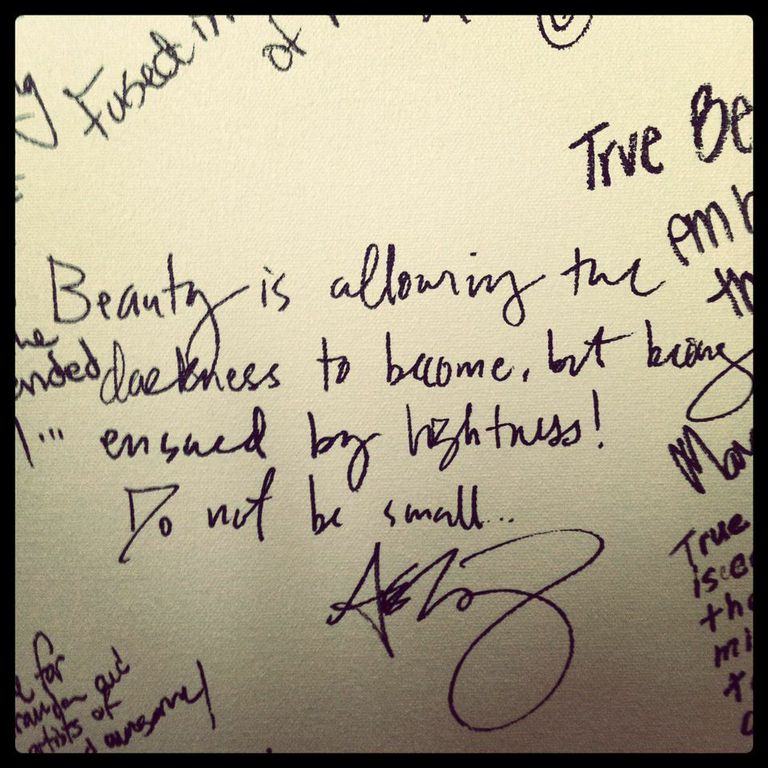 Fused in
of
True Be
emb
Beauty is allowing the
darkness to become, but being
ensued by lightness!
Do not be small...
he
ended
True
is
the
mi
for
and
artists of
awesome!